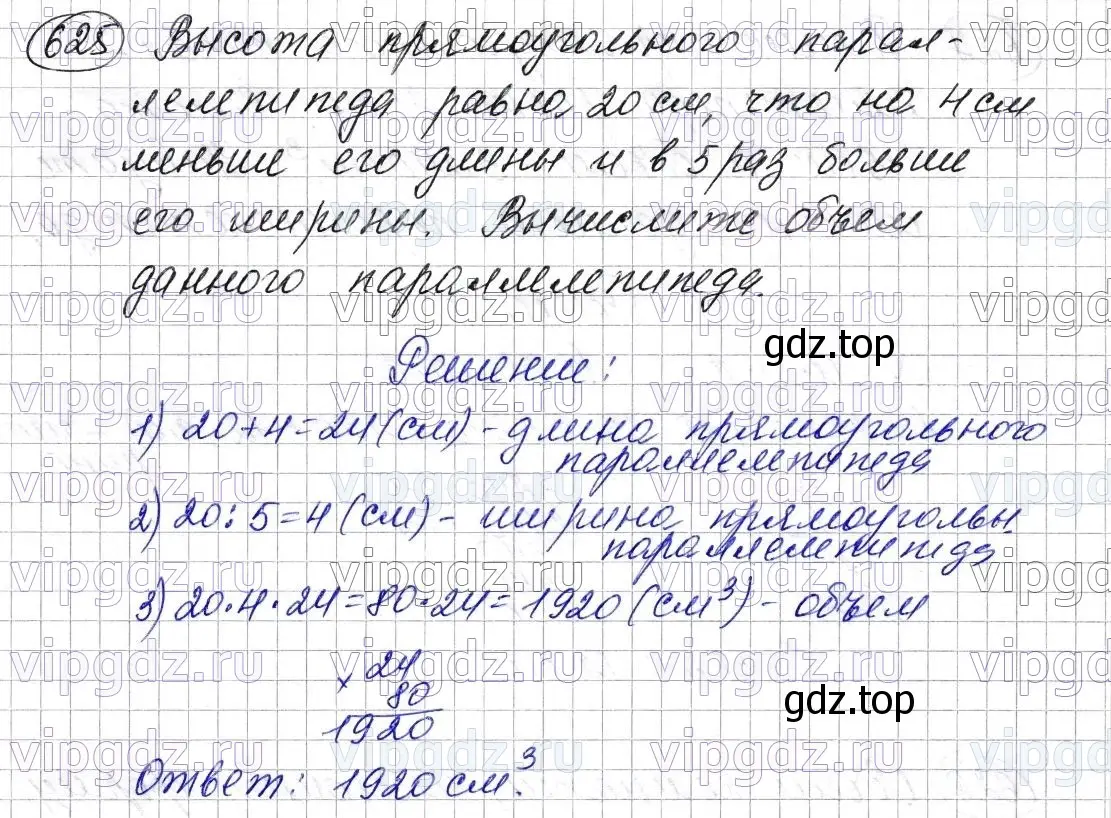 625 Высота прямоугольного парал-
лелепипеда равна 20 см, что на 4 см
меньше его длины и в 5 раз больше
его ширины. Вычислите объем
данного параллелепипеда.
gdz.top
Решение:
1) 20+4=24 (см) - длина прямоугольного
параллелепипеда
2) 20:5=4 (см) - ширина прямоугольн.
параллелепипеда
3) 20·4·24=80·24=1920 (см³) - объем
× 24
80
1920
gdz.top
Ответ: 1920 см³.
vipgdz.ru